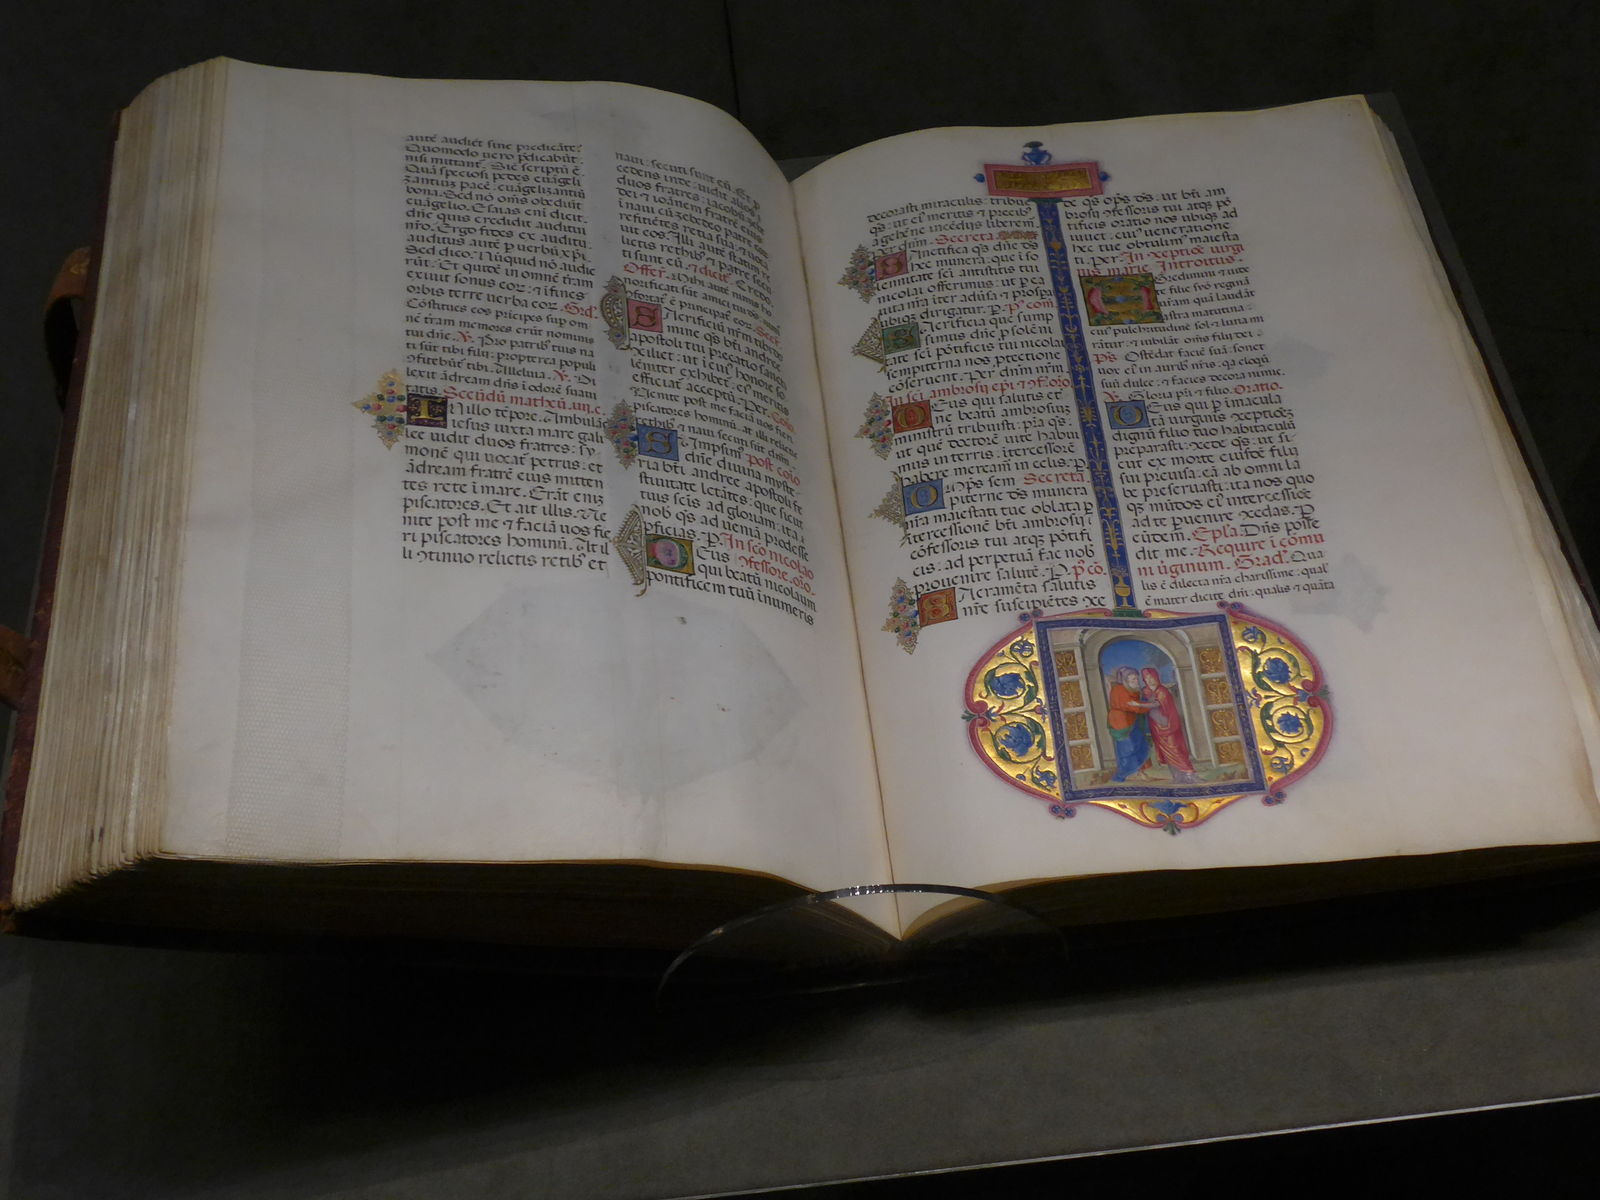 autē audiēt sine predicāte?
Quomodo uero p̄dicabūt:
nisi mittant᷑. Sic scriptū ē.
Quā speciosi pedes euāgeli
zantiuʒ pacē: euāgelizantiū
bona. Sed nō om̄s obediūt
euāgelio. Esaias eni dicit.
dn̄e quis credidit auditui
nr̄o. Ergo fides ex auditu.
auditus autē p uerbū xp̄i.
Sed dico. Nūquid nō audie
rūt. Et quidē in omnē t̄ram
exiuit sonus eoꝝ: ⁊ ī fines
orbis terre uerba eoꝝ. Grd.
Cōstitues eos pricipes sup om
nē t̄ram memores erūt nominis
tui dn̄e. ℣. Pro patrib᷒ tuis na
ti sūt tibi filij: propterea populi
ꝯfitebūt᷑ tibi. Alleluia. ℣. Di
lexit ādream dn̄s ī odorē suaui
tatis. Secūdū matheū. un. c.
IN illo tēpore. Ambulās
iesus iuxta mare gali
lee uidit duos fratres: sy-
monē qui uocat᷑ petrus: et
ādream fratrē eius mitten
tes rete ī mare. Erāt eniʒ
piscatores. Et ait illis. Ve
nite post me ⁊ faciā uos fie
ri piscatores hominū. At il
li ꝯtinuo relictis retib᷒ et
naui: secuti sunt eū. Et p
cedens inde: uidit alios
duos fratres: iacobū zebe
dei ⁊ ioānem fratrē eius
ī naui cū zebedeo patre eoꝝ
reficiētes retia sua: ⁊ uoca
uit eos. Illi autē statim re
lictis retib᷒ ⁊ patre: secu
ti sunt eū. ⁊ dicit᷑. Credo.
Offer. Mihi autē nimis ho
norificati sūt amici tui d̄s: nimis
ꝯfortat᷒ ē principat᷒ eoꝝ. Secr.
SAcrificiū nr̄m tibi dn̄e
mune qs̄ bt̄i andree
apostoli tui precatio sancta
ꝯciliet: ut ī cui᷒ honore so
lēniter exhibet᷑: ei᷒ meritis
efficiat᷑ acceptū. Per. Cōio.
Venite post me faciā uos fieri
piscatores hominū. at illi relictis
rethib᷒ ⁊ naui secuti sūt dn̄m.
SUmpsim᷒ Post cōio
dn̄e diuina myste-
ria bt̄i andree apostoli fe
stiuitate letātes: que sicut
tuis scīs ad gloriam: ita ⁊
nob qs̄ ad ueniā prodesse
pficias. P. In scō nicolao
DEus ꝯfessore. oro.
qui beatū nicolaum
pontificem tuū īnumeris
decorasti miraculis: tribue
qs̄: ut ei᷒ meritis ⁊ precib᷒
a gehēne incēdijs liberem᷒.
Per dnm. Secreta.
SAnctifica qs̄ dn̄e d̄s
hec munera: que ī so
lēnitate sc̄i antistitis tui
nicolai offerimus: ut p ea
uita nr̄a īter aduersa ⁊ prospa
ubiqʒ dirigatur. P. Pꝰ com
SAcrificia que sump
simus dn̄e p solēni
tate sc̄i pōtificis tui nicolai
sempiterna nos ptectione
cōseruent. Per dnm nr̄m.
In sc̄i ambrosij ep̄i ⁊ ꝯf. oro.
DEus qui salutis et
ne beatū ambrosiuʒ
ministrū tribuisti: pr̄a qs̄:
ut quē doctorē uite habui
mus in terris: ītercessorē
habere meream᷒ in celis. P.
OMps sem Secreta.
piterne d̄s munera
nr̄a maiestati tue oblata p
ītercessionē bt̄i ambrosij
cōfessoris tui atqʒ pōtifi
cis: ad perpetuā fac nob
prouenire salutē. P. Pꝰ cō.
SAcramēta salutis
nr̄e suscipiētes ꝯce
de qs̄ op̄s d̄s: ut bt̄i am
brosij ꝯfessoris tui atqʒ pō
tificis oratio nos ubiqʒ ad
iuuet: cui᷒ ueneratione
hec tue obtulim᷒ maiesta
ti. Per. In ꝯceptiōe uirgi
nis marie Introitus.
EGredimini ⁊ uide
te filie syō reginā
uestrā quā laudāt
astra matutina:
cui᷒ pulchritudinē sol ⁊ luna mi
rātur: ⁊ iubilāt om̄s filij dei.
Ps. Ostēdat faciē suā: sonet
uox ei᷒ in aurib᷒ nr̄is. qa eloqū
suū dulce: ⁊ facies decora nimis.
℣. Gloria pr̄i ⁊ filio. Oratio.
DEus qui p īmacula
tā uirginis ꝯceptiōeʒ
dignū filio tuo habitaculū
preparasti: ꝯcede qs̄: ut si-
cut ex morte eiusdē filij
tui preuisa: eā ab omni la
be preseruasti: ita nos quoqʒ
mūdos ei᷒ intercessiōe
ad te puenire ꝯcedas. P
eūdem. Epl̄a. Dn̄s posse
dit me. Require ī comu
ni uirginum. Grad. Qua
lis ē dilecta nr̄a charissime: qual᷒
ē mater dicite dn̄i: qualis ⁊ quāta